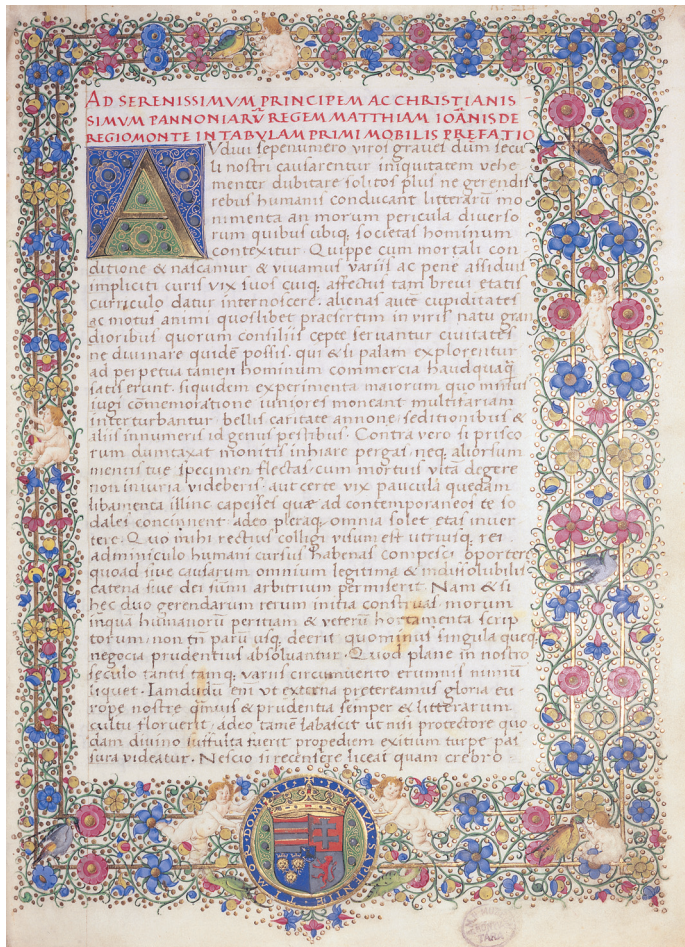 AD SERENISSIMVM PRINCIPEM AC CHRISTIANIS
SIMVM PANNONIARŪ REGEM MATTHIAM IOĀNIS DE
REGIOMONTE IN TABVLAM PRIMI MOBILIS PREFATIO
AVdiui sepenumero viros graues dum secu
li nostri causarentur iniquitatem vehe
menter dubitare solitos plus ne gerendis
rebus humanis conducant litterarū mo
nimenta an morum pericula diuerso
rum quibus ubiq, societas hominum
contexitur. Quippe cum mortali con
ditione & nascamur & viuamus variis ac pene assiduis
impliciti curis vix suos cuiq, affectus tam breui etatis
curriculo datur internoscere. alienas autē cupiditates
ac motus animi quoslibet praesertim in viris natu gran
dioribus quorum consiliis cepte seruantur ciuitates
ne diuinare quidē possis. qui & si palam explorentur
ad perpetua tamen hominum commercia haudquaq̄
satis erunt. siquidem experimenta maiorum quo minus
iugi cōmemoratione iuniores moneant multifariam
interturbantur bellis caritate annone seditionibus &
aliis innumeris id genus pestibus. Contra vero si prisco
rum dumtaxat monitis inhiare pergas neq, aliorsum
mentis tue specimen flectas. cum mortuis vitā degere
non iniuria videberis. aut certe vix paucula quedam
libamenta illinc capesses quæ ad contemporaneos te so
dales concinnent. adeo pleraq, omnia solet etas inuer
tere. Quo mihi rectius colligi visum est utriusq, rei
adminiculo humani cursus habenas compesci oportere
quoad siue causarum omnium legitima & indissolubilis
catena siue dei sum̄i arbitrium permiserit. Nam & si
hec duo gerendarum rerum initia construas morum
inquā humanorū peritiam & veterū hortamenta scrip
torum. non tn̄ parū usq, deerit quominus singula queq,
negocia prudentius absoluantur. Quod plane in nostro
seculo tantis tamq, variis circumuento erumnis nimiū
liquet. Iamdudū em̄ vt externa pretereamus gloria eu-
rope nostre quæuis & prudentia semper & litterarum
cultu floruerit. adeo tamē labascit ut nisi protectore quo
dam diuino suffulta fuerit propediem exitium turpe pas
sura videatur. Nescio si recensere liceat quam crebro
INITIVM SAPIENTIE TIMOR DOMINI